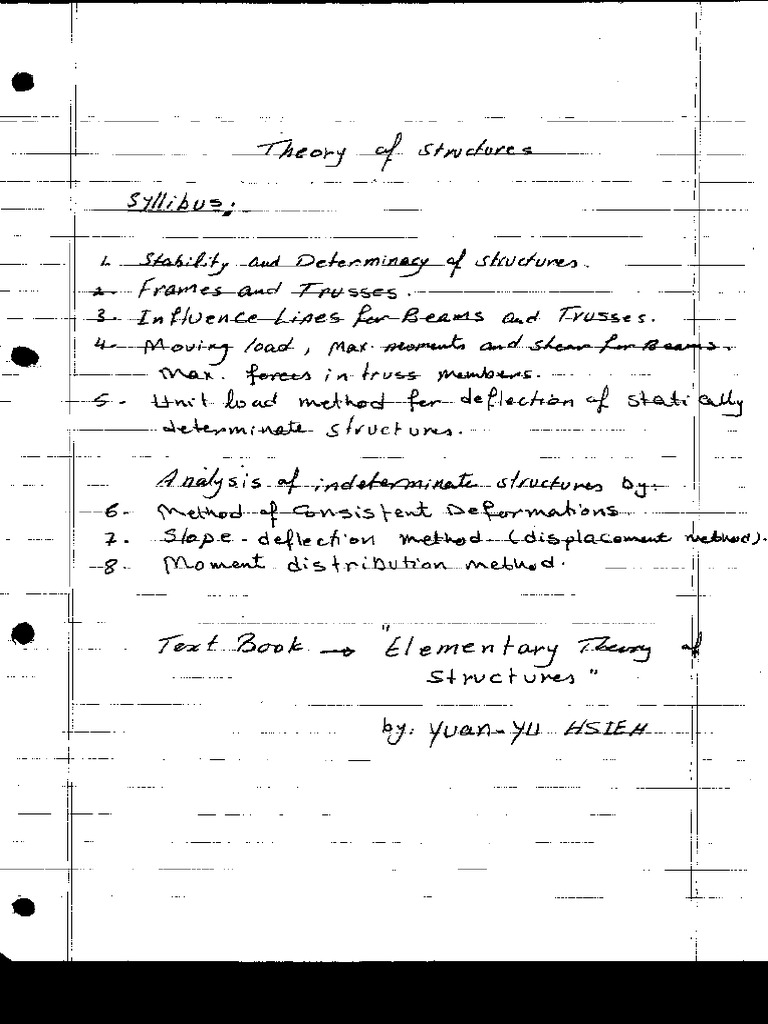 Theory of structures
Syllibus:
1. Stability and Determinacy of structures.
2. Frames and Trusses.
3. Influence Lines for Beams and Trusses.
4. Moving load, Max. moments and shear for Beams.
Max. forces in truss members.
5. Unit load method for deflection of statically
determinate structures.
Analysis of indeterminate structures by:
6. Method of Consistent Deformations.
7. Slope-deflection method (displacement method).
8. Moment distribution method.
Text Book → "Elementary Theory of
structures"
by: Yuan-Yu HSIEH